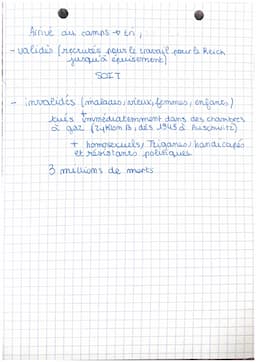 Arrivé au camps → tri,
- valides (recrutés pour le travail pour le Reich
jusqu'à épuisement)
SOIT
- invalides (malades, vieux, femmes, enfants)
tués immédiatemment dans des chambres
à gaz (Zyklon B, dès 1943 à Auschwitz)
+ homosexuels, Tziganes, handicapés
et résistants politiques
3 millions de morts